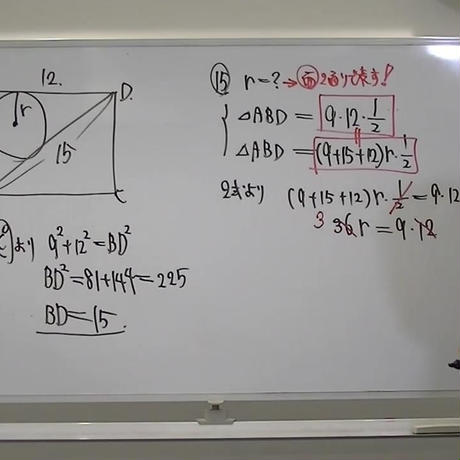 12.
D.
r
15
C
より 9²+12²=BD²
BD²=81+144=225
BD=15
⑮ r=?→面2通りで表す!
△ABD=9・12・1/2
=
△ABD=(9+15+12)r・1/2
2式より (9+15+12)r・1/2=9・12
3 36r=9・12